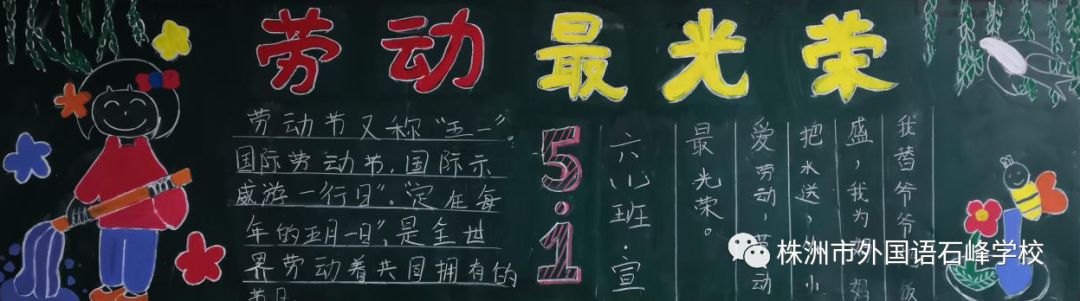 劳动最光荣
劳动节又称“五一”。
国际劳动节、国际示
威游一行日”。定在每
年的五月一日”，是全世
界劳动着共同拥有的
节日
5·1
六班·宣
我替爷爷饭
盛，我为妈
把水送，小
爱劳动，劳动
最光荣。
株洲市外国语石峰学校